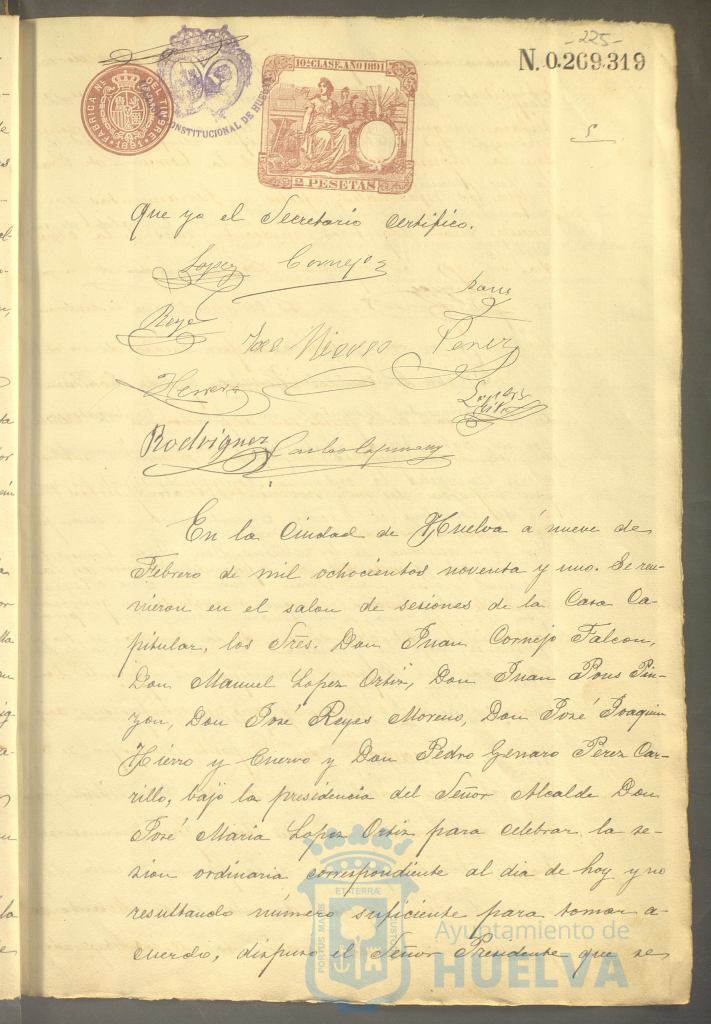 -225-
N. 0.269.319
FABRICA NL. DEL TIMBRE
1891
CONSTITUCIONAL DE HUELVA
10ª CLASE. AÑO 1891
2 PESETAS
Que yo el Secretario certifico.
Lopez Cornejo
Pons
Reyes
José Hierro Perez
Herrera
Rodriguez
En la Ciudad de Huelva á nueve de
Febrero de mil ochocientos noventa y uno. Se reu-
nieron en el salon de sesiones de la Casa Ca-
pitular, los Sres. Don Juan Cornejo Falcon,
Don Manuel Lopez Ortiz, Don Juan Pons Pin-
zon, Don José Reyes Moreno, Don José Joaquin
Hierro y Cuervo y Don Pedro Genaro Perez Car-
rillo, bajo la presidencia del Señor Alcalde Don
José Maria Lopez Ortiz para celebrar la se-
sion ordinaria correspondiente al dia de hoy y no
resultando número suficiente para tomar a-
cuerdo, dispuso el Señor Presidente que se
PORTUS MARIS ET TERRÆ CUSTODIA
Ayuntamiento de
HUELVA